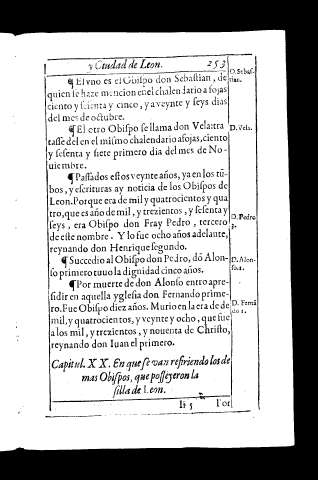 y Ciudad de Leon. 253
¶ El vno es el Obispo don Sebastian, de
quien se haze mencion enel chalendario a fojas
ciento y setenta y cinco, y a veynte y seys dias
del mes de octubre.
¶ El otro Obispo se llama don Vela: tra
tasse del en el mismo chalendario a fojas, ciento
y sesenta y siete primero dia del mes de No-
uiembre.
¶ Passados estos veynte años, ya en los tũ-
bos, y escrituras ay noticia de los Obispos de
Leon. Porque era de mil y quatrocientos y qua
tro, que es año de mil, y trezientos, y sesenta y
seys, era Obispo don Fray Pedro, tercero
de este nombre. Y lo fue ocho años adelante,
reynando don Henrique segundo.
¶ Succedio al Obispo don Pedro, dõ Alon-
so primero tuuo la dignidad cinco años.
¶ Por muerte de don Alonso entro a pre-
sidir en aquella yglesia don Fernando prime-
ro. Fue Obispo diez años. Murio en la era de de
mil, y quatrocientos, y veynte y ocho, que fue
a los mil, y trezientos, y nouenta de Christo,
reynando don Iuan el primero.
Capitul. XX. En que se van refiriendo los de
mas Obispos, que posseyeron la
silla de Leon.
Ii 5 Por
D. Sebas-
tian.
D. Vela.
D. Pedro
3.
D. Alon-
so. 1.
D. Fernã
do 1.